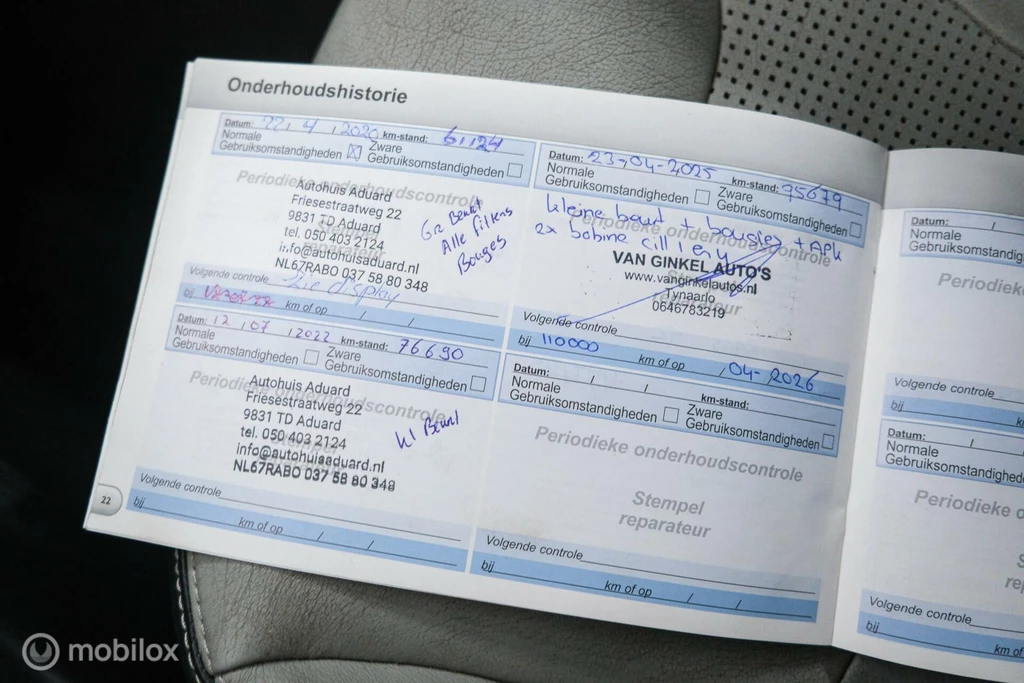 Onderhoudshistorie
Datum: 22, 4, 2020 km-stand: 61124
Normale
Gebruiksomstandigheden
Zware
Gebruiksomstandigheden
Periodieke onderhoudscontrole
Autohuis Aduard
Friesestraatweg 22
9831 TD Aduard
tel. 050 403 2124
info@autohuisaduard.nl
NL67RABO 037 58 80 348
Gr Beurt
Alle filters
Bougies
Volgende controle Zie display
bij km of op / /
Datum: 12, 07, 2022 km-stand: 76690
Normale
Gebruiksomstandigheden
Zware
Gebruiksomstandigheden
Periodieke onderhoudscontrole
Autohuis Aduard
Friesestraatweg 22
9831 TD Aduard
tel. 050 403 2124
info@autohuisaduard.nl
NL67RABO 037 58 80 348
kl Beurt
Volgende controle
bij km of op / /
22
Datum: 23-04-2025 km-stand: 95679
Normale
Gebruiksomstandigheden
Zware
Gebruiksomstandigheden
Periodieke onderhoudscontrole
kleine beurt + bougies + Apk
2x bobine cill 1 en
VAN GINKEL AUTO'S
www.vanginkelautos.nl
Tynaarlo
0646783219
Volgende controle
bij 110000 km of op / 04-2026
Datum: / / km-stand:
Normale
Gebruiksomstandigheden
Zware
Gebruiksomstandigheden
Periodieke onderhoudscontrole
Stempel
reparateur
Volgende controle
bij km of op / /
Datum: /
Normale
Gebruiksomstandigheden
Periodieke
Volgende controle
bij km of
Datum: /
Normale
Gebruiksomstandighede
Periodieke o
Volgende controle
bij km of
mobilox